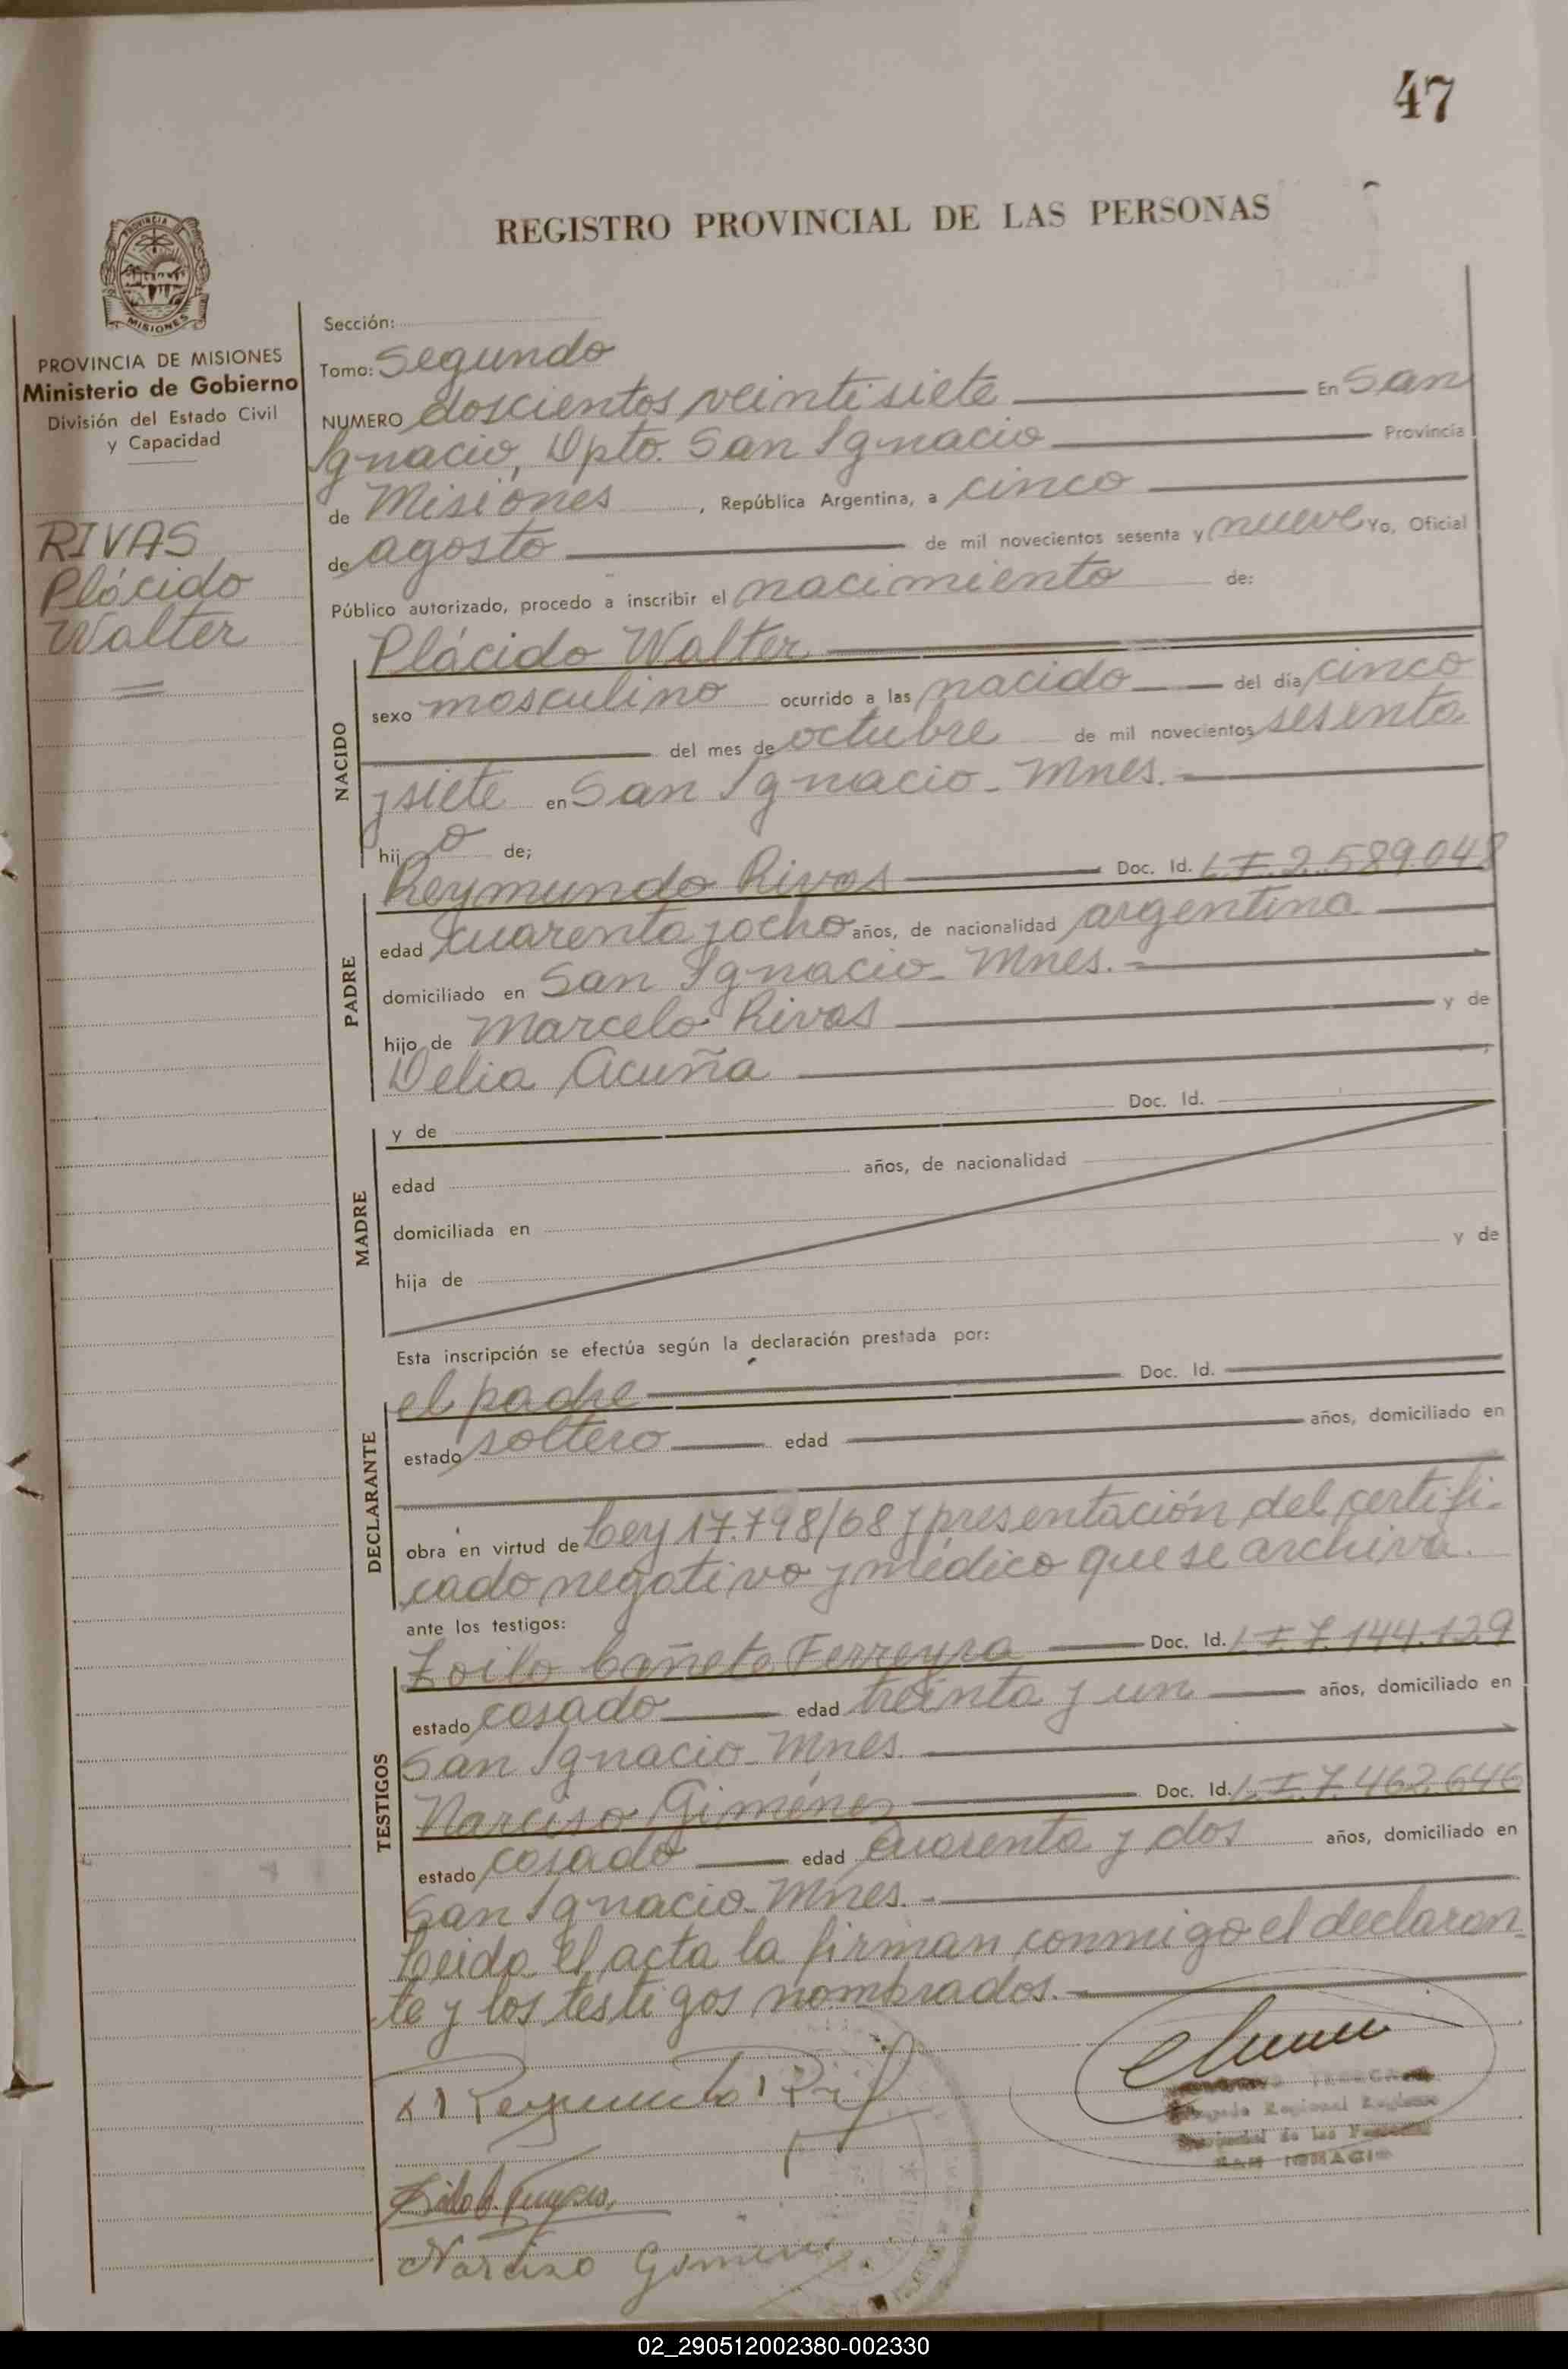 47
REGISTRO PROVINCIAL DE LAS PERSONAS
PROVINCIA
MISIONES
PROVINCIA DE MISIONES
Ministerio de Gobierno
División del Estado Civil
y Capacidad
RIVAS
Plácido
Walter
Sección:
Tomo: Segundo
NUMERO doscientos veintisiete En San
Ignacio, Dpto. San Ignacio Provincia
de Misiones , República Argentina, a cinco
de agosto de mil novecientos sesenta y nueve Yo, Oficial
Público autorizado, procedo a inscribir el nacimiento de:
NACIDO
Plácido Walter
sexo masculino ocurrido a las nacido del día cinco
del mes de octubre de mil novecientos sesenta
y siete en San Ignacio - Mnes. -
hij o de;
PADRE
Reymundo Rivas Doc. Id. L.E. 2.589.048
edad cuarenta y ocho años, de nacionalidad argentina
domiciliado en San Ignacio - Mnes. -
hijo de Marcelo Rivas y de
Delia Acuña
MADRE
y de Doc. Id.
edad años, de nacionalidad
domiciliada en
hija de y de
Esta inscripción se efectúa según la declaración prestada por:
DECLARANTE
el padre Doc. Id.
estado soltero edad años, domiciliado en
obra en virtud de Ley 17.798/68 y presentación del certifi-
cado negativo y médico que se archiva.
ante los testigos:
TESTIGOS
Zoilo Cañete Ferreyra Doc. Id. L.E. 7.144.129
estado casado edad treinta y un años, domiciliado en
San Ignacio - Mnes.
Narciso Giménez Doc. Id. L.E. 7.462.646
estado casado edad cuarenta y dos años, domiciliado en
San Ignacio - Mnes. -
Leida el acta la firman conmigo el declaran-
te y los testigos nombrados. -
Regional
de las
SAN IGNACIO
Narciso
02_290512002380-002330